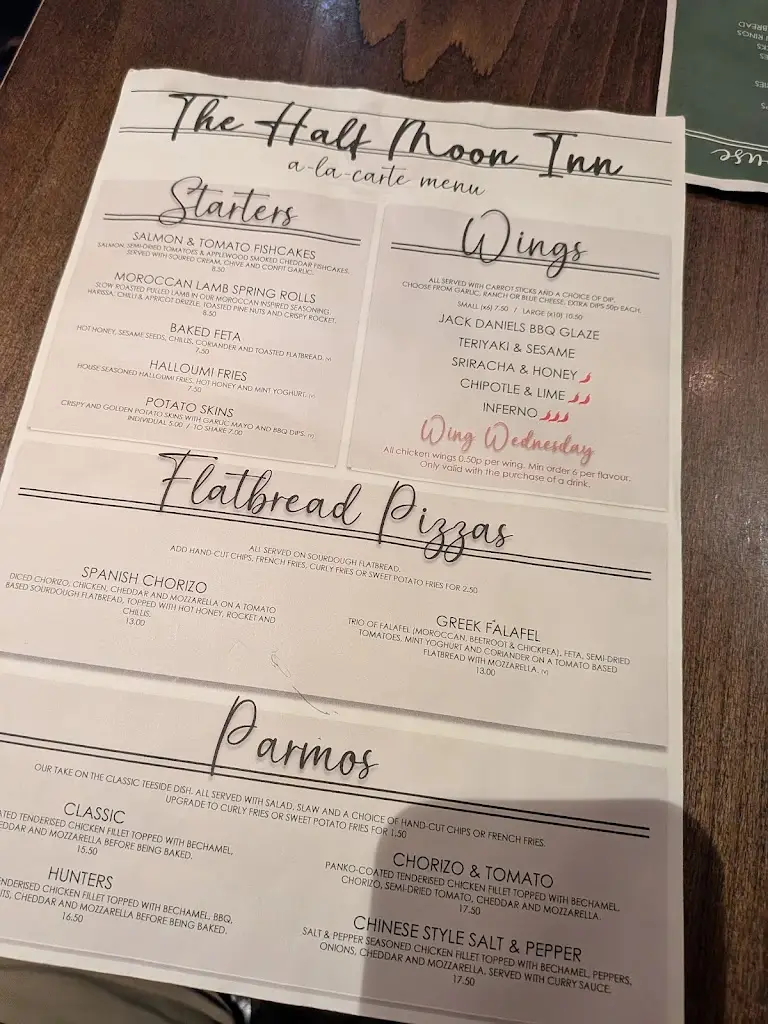 The Half Moon Inn
a-la-carte menu
Starters
SALMON & TOMATO FISHCAKES
SALMON, SEMI-DRIED TOMATOES & APPLEWOOD SMOKED CHEDDAR FISHCAKES.
SERVED WITH SOURED CREAM, CHIVE AND CONFIT GARLIC.
8.50
MOROCCAN LAMB SPRING ROLLS
SLOW ROASTED PULLED LAMB IN OUR MOROCCAN INSPIRED SEASONING,
HARISSA, CHILLI & APRICOT DRIZZLE, TOASTED PINE NUTS AND CRISPY ROCKET.
8.50
BAKED FETA
HOT HONEY, SESAME SEEDS, CHILLIS, CORIANDER AND TOASTED FLATBREAD. (V)
7.50
HALLOUMI FRIES
HOUSE SEASONED HALLOUMI FRIES, HOT HONEY AND MINT YOGHURT. (V)
7.50
POTATO SKINS
CRISPY AND GOLDEN POTATO SKINS WITH GARLIC MAYO AND BBQ DIPS. (V)
INDIVIDUAL 5.00 / TO SHARE 7.00
Wings
ALL SERVED WITH CARROT STICKS AND A CHOICE OF DIP.
CHOOSE FROM GARLIC, RANCH OR BLUE CHEESE. EXTRA DIPS 50p EACH.
SMALL (x6) 7.50 / LARGE (x10) 10.50
JACK DANIELS BBQ GLAZE
TERIYAKI & SESAME
SRIRACHA & HONEY
CHIPOTLE & LIME
INFERNO
Wing Wednesday
All chicken wings 0.50p per wing. Min order 6 per flavour.
Only valid with the purchase of a drink.
Flatbread Pizzas
ALL SERVED ON SOURDOUGH FLATBREAD.
ADD HAND-CUT CHIPS, FRENCH FRIES, CURLY FRIES OR SWEET POTATO FRIES FOR 2.50
SPANISH CHORIZO
DICED CHORIZO, CHICKEN, CHEDDAR AND MOZZARELLA ON A TOMATO
BASED SOURDOUGH FLATBREAD, TOPPED WITH HOT HONEY, ROCKET AND
CHILLIS.
13.00
GREEK FALAFEL
TRIO OF FALAFEL (MOROCCAN, BEETROOT & CHICKPEA), FETA, SEMI-DRIED
TOMATOES, MINT YOGHURT AND CORIANDER ON A TOMATO BASED
FLATBREAD WITH MOZZARELLA. (V)
13.00
Parmos
OUR TAKE ON THE CLASSIC TEESIDE DISH. ALL SERVED WITH SALAD, SLAW AND A CHOICE OF HAND-CUT CHIPS OR FRENCH FRIES.
UPGRADE TO CURLY FRIES OR SWEET POTATO FRIES FOR 1.50
CLASSIC
TENDERISED CHICKEN FILLET TOPPED WITH BECHAMEL,
AND MOZZARELLA BEFORE BEING BAKED.
15.50
HUNTERS
CHICKEN FILLET TOPPED WITH BECHAMEL, BBQ,
CHEDDAR AND MOZZARELLA BEFORE BEING BAKED.
16.50
CHORIZO & TOMATO
PANKO-COATED TENDERISED CHICKEN FILLET TOPPED WITH BECHAMEL,
CHORIZO, SEMI-DRIED TOMATO, CHEDDAR AND MOZZARELLA.
17.50
CHINESE STYLE SALT & PEPPER
SALT & PEPPER SEASONED CHICKEN FILLET TOPPED WITH BECHAMEL, PEPPERS,
ONIONS, CHEDDAR AND MOZZARELLA. SERVED WITH CURRY SAUCE.
17.50